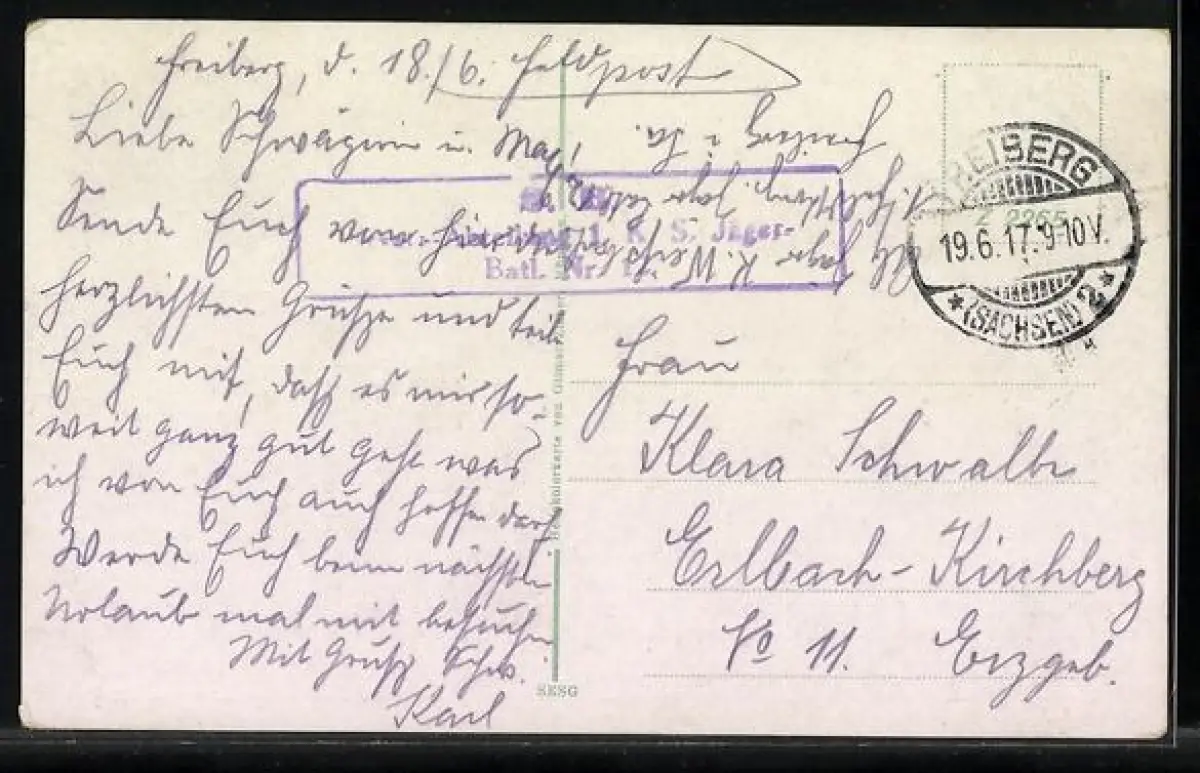 Freiberg, d. 18./6. Feldpost
Liebe Schwägerin u. Max!
Sende Euch von hier die
herzlichsten Grüße und teile
Euch mit, daß es mir so-
weit ganz gut geht was
ich von Euch auch hoffen darf
Werde Euch beim nächsten
Urlaub mal mit besuchen
Mit Gruß Schw.
Karl
Freiberg i. Sa.
S. B.
1. K. S. Jäger-
Batl. Nr.
FREIBERG
19.6.17. 9-10V.
* (SACHSEN) 2 *
Z 2265
Frau
Klara Schwalbe
Erlbach-Kirchberg
No 11. Erzgeb.
SESG